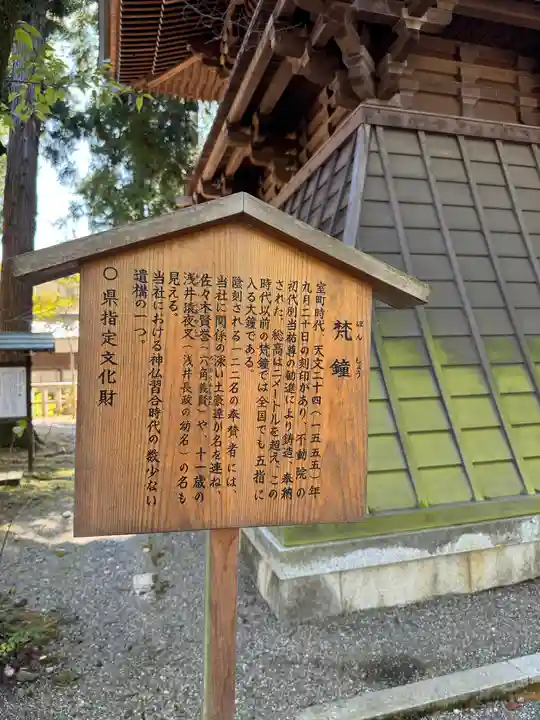 梵鐘
ぼんしょう
室町時代 天文二十四(一五五五)年
九月二十日の刻印があり、不動院の
初代別当祐尊の勧進により鋳造、奉納
された。総高は二メートルを超え、この
時代以前の梵鐘では全国でも五指に
入る大鐘である。
陰刻される一二二名の奉賛者には、
当社に関係の深い土豪達が名を連ね、
佐々木賢誉(六角義賢)や、十一歳の
浅井猿夜叉(浅井長政の幼名)の名も
見える。
当社における神仏習合時代の数少ない
遺構の一つ。
〇県指定文化財